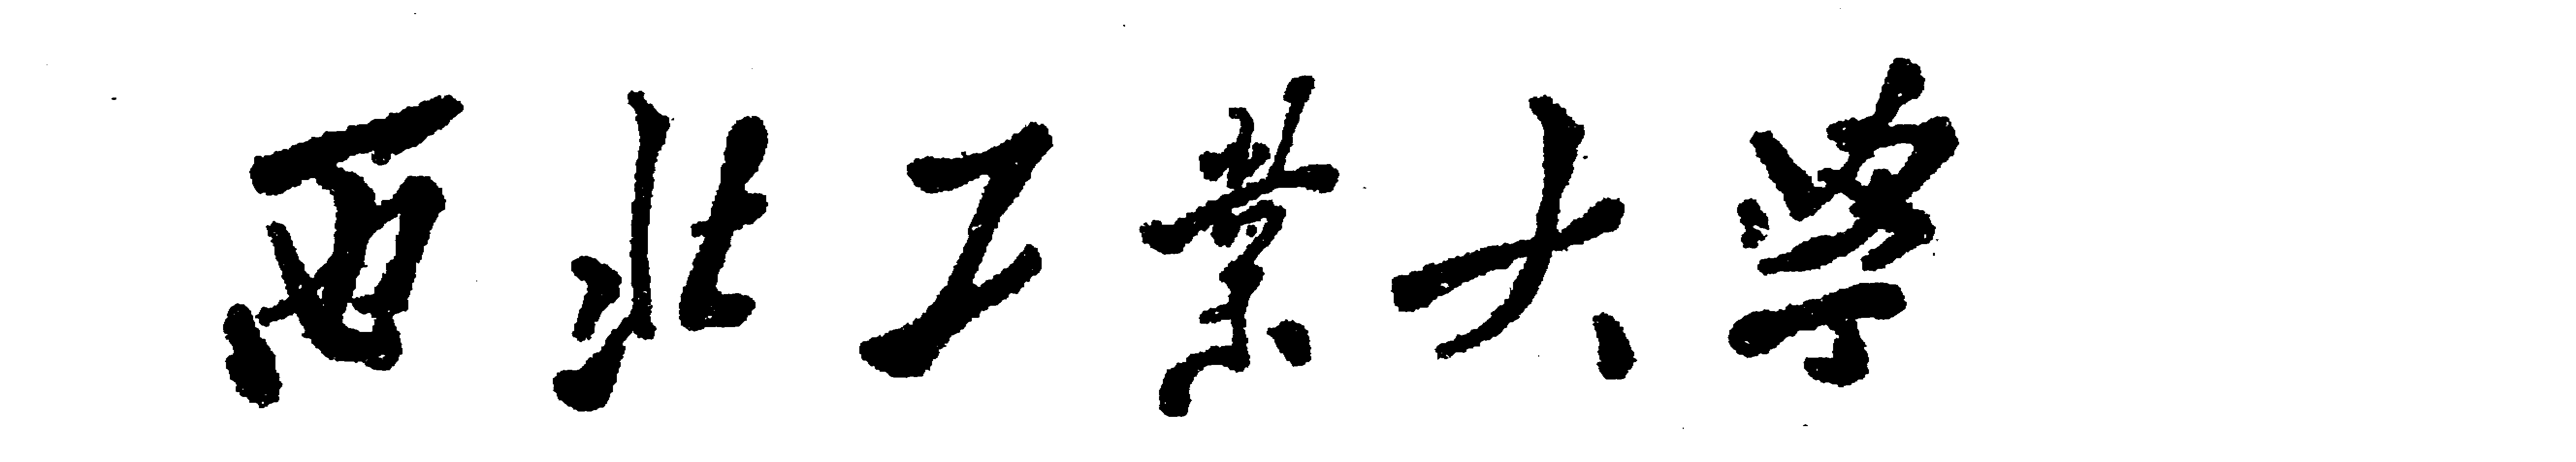 西北工業大學